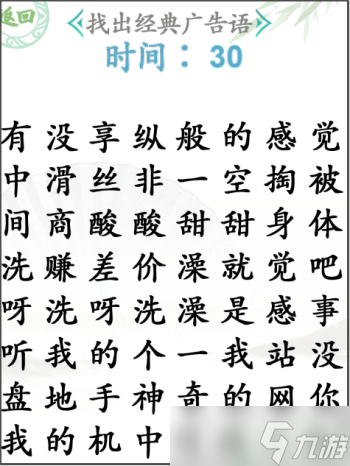 返回
找出经典广告语
时间：30
有没享纵般的感觉
中滑丝非一空掏被
间商酸酸甜甜身体
洗赚差价澡就觉吧
呀洗呀洗澡是感事
听我的个一我站没
盘地手神奇的网你
我的机中
九游